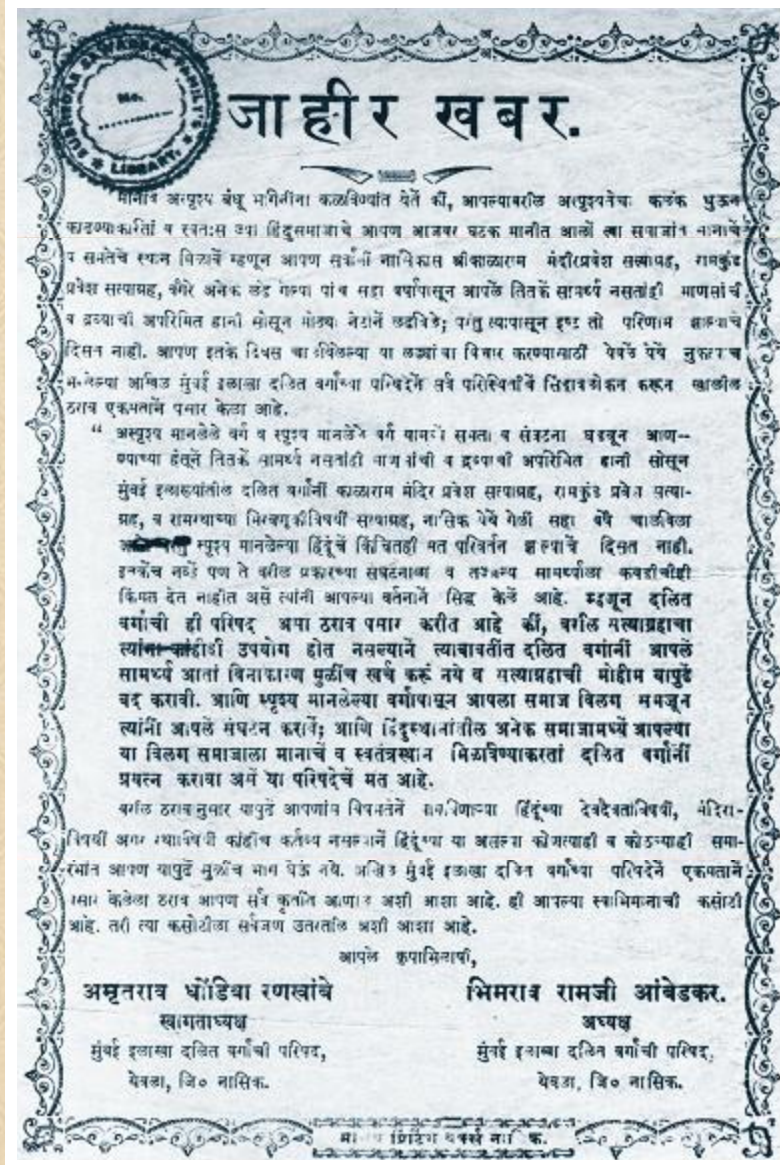 SURENDRA GAWADHAR FAMILY'S
No.
LIBRARY.
जाहीर खबर.
अस्पृश्य बंधू भगिनींना कळविण्यांत येतें कीं, आपल्यावरील अस्पृश्यतेचा कलंक धुऊन
काढण्याकरितां व स्वतःस ज्या हिंदुसमाजाचे आपण आजवर घटक मानीत आलों त्या समाजांत मानाचें
व समतेचे स्थान मिळावें म्हणून आपण सर्वांनीं नाशिकास श्रीकाळाराम मंदीरप्रवेश सत्याग्रह, रामकुंड
प्रवेश सत्याग्रह, वगैरे अनेक लढे गेल्या पांच सहा वर्षांपासून आपलें तितकें सामर्थ्य नसतांही माणसांची
व द्रव्याची अपरिमित हानी सोसून मोठ्या नेटानें लढविले; परंतु त्यापासून इष्ट तो परिणाम झाल्याचे
दिसत नाही. आपण इतके दिवस चालविलेल्या या लढ्यांचा विचार करण्यासाठीं येवलें येथें नुकत्याच
भरलेल्या अखिल मुंबई इलाखा दलित वर्गाच्या परिषदेनें सर्व परिस्थितीचें सिंहावलोकन करून खालील
ठराव एकमतानें पसार केला आहे.
“ अस्पृश्य मानलेले वर्ग व स्पृश्य मानलेले वर्ग यामध्यें समता व संघटना घडवून आण-
ण्याच्या हेतूनें तितकें सामर्थ्य नसतांही माणसांची व द्रव्याची अपरिमित हानी सोसून
मुंबई इलाख्यांतील दलित वर्गांनीं काळाराम मंदिर प्रवेश सत्याग्रह, रामकुंड प्रवेश सत्या-
ग्रह, व रामरथाच्या मिरवणूकीविषयीं सत्याग्रह, नाशिक येथें गेलीं सहा वर्षें चालविला
स्पृश्य मानलेल्या हिंदूंचें किंचितही मत परिवर्तन झाल्याचें दिसत नाही.
इतकेंच नव्हें पण ते वरील प्रकारच्या संघटनाला व तज्जन्य सामर्थ्याला कवडीचीही
किंमत देत नाहीत असें त्यांनीं आपल्या वर्तनानें सिद्ध केलें आहे. म्हणून दलित
वर्गाची ही परिषद अमा ठराव पसार करीत आहे कीं, वरील सत्याग्रहाचा
उपयोग होत नसल्यानें त्याबाबतींत दलित वर्गांनीं आपलें
सामर्थ्य आतां विनाकारण मुळींच खर्च करूं नये व सत्याग्रहाची मोहीम यापुढें
बंद करावी. आणि स्पृश्य मानलेल्या वर्गापासून आपला समाज विलग समजून
त्यांनीं आपलें संघटन करावें; आणि हिंदुस्थानांतील अनेक समाजामध्यें आपल्या
या विलग समाजाला मानाचें व स्वतंत्रस्थान मिळविण्याकरतां दलित वर्गांनीं
प्रयत्न करावा असें या परिषदेचें मत आहे.
वरील ठरावानुसार यापुढें आपणांस विषमतेनें वागविणाऱ्या हिंदूंच्या देवदैवतांविषयीं, मंदिरा-
विषयीं अगर रथाविषयीं कांहींच कर्तव्य नसल्यानें हिंदूंच्या या असल्या कोणत्याही व कोठल्याही समा-
रंभांत आपण यापुढें मुळींच भाग घेऊं नये. अखिल मुंबई इलाखा दलित वर्गाच्या परिषदेनें एकमतानें
पसार केलेला ठराव आपण सर्व कृतींत आणाल अशी आशा आहे. ही आपल्या स्वाभिमानाची कसोटी
आहे. तरी त्या कसोटीला सर्वजण उतरतील अशी आशा आहे.
आपले कृपाभिलाषी,
अमृतराव धोंडिबा रणखांबे
स्वागताध्यक्ष
मुंबई इलाखा दलित वर्गाची परिषद,
येवला, जि० नासिक.
भिमराव रामजी आंबेडकर.
अध्यक्ष
मुंबई इलाखा दलित वर्गाची परिषद,
येवला, जि० नासिक.
प्रिंटिंग वर्क्स